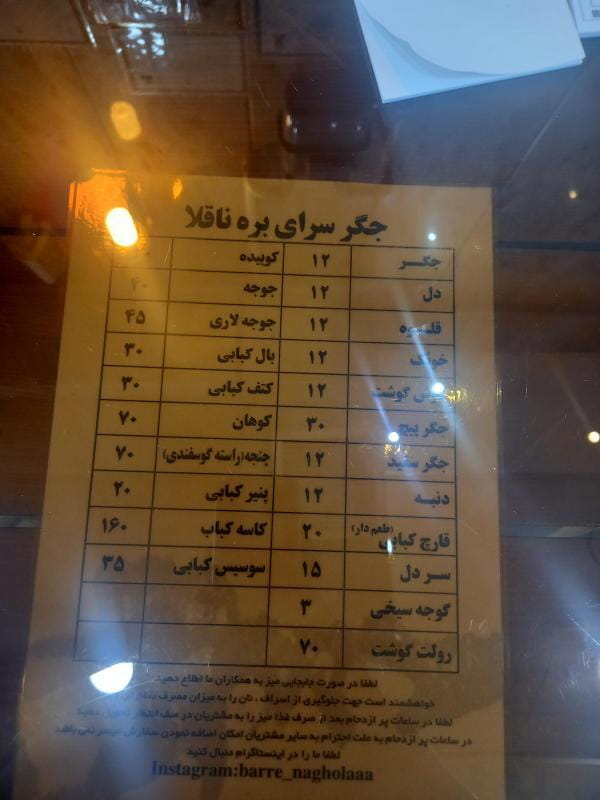 جگر سرای بره ناقلا
جگر ۱۲ کوبیده
دل ۱۲ جوجه ۴۰
قلوه ۱۲ جوجه لاری ۴۵
خوئک ۱۲ بال کبابی ۳۰
گوشت ۱۲ کتف کبابی ۳۰
جگر پیچ ۳۰ کوهان ۷۰
جگر سفید ۱۲ چنجه(راسته گوسفندی) ۷۰
دنبه ۱۲ پنیر کبابی ۲۰
قارچ کبابی (طعم دار) ۲۰ کاسه کباب ۱۶۰
سر دل ۱۵ سوسیس کبابی ۳۵
گوجه سیخی ۳
رولت گوشت ۷۰
لطفا در صورت جابجایی میز به همکاران ما اطلاع دهید
خواهشمند است جهت جلوگیری از اسراف ، نان را به میزان مصرف
لطفا در ساعات پر ازدحام بعد از صرف غذا میز را به مشتریان در صف انتظار تحویل دهید
در ساعات پر ازدحام به علت احترام به سایر مشتریان امکان اضافه نمودن سفارش میسر نمی باشد
لطفا ما را در اینستاگرام دنبال کنید
Instagram:barre_nagholaaa